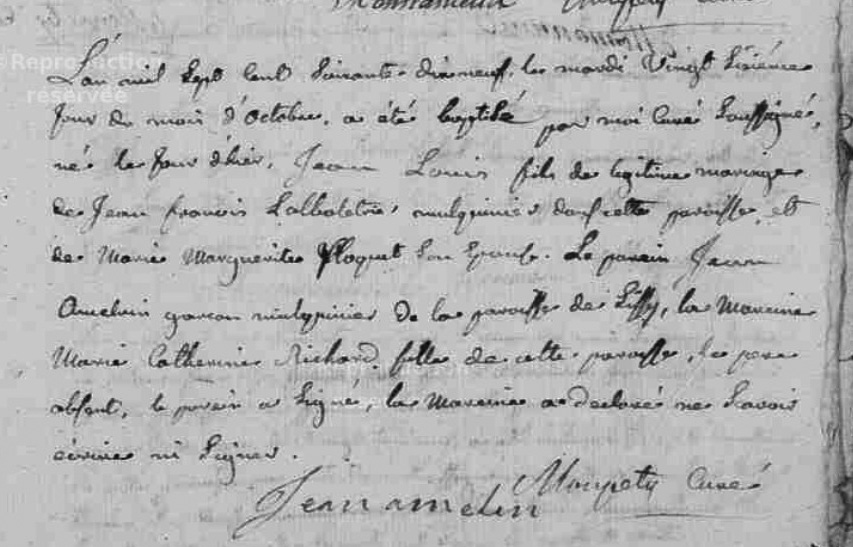 Reproduction
réservée
L'an mil Sept Cent Soixante-dix neuf, le mardi Vingt Sixième
Jour du mois d'Octobre, a été baptisé par moi Curé Soussigné,
né le Jour d'hier, Jean Louis fils de légitime mariage
de Jean francois Lalbaletrie, mulquinier de cette paroisse, et
de Marie Marguerite Ploquet Son Epouse. Le parein Jean
Amelin garcon mulquinier de la paroisse de Lissy, la Mareine
Marie Catherine Richard fille de cette paroisse, Le pere
absent, le parein a Signé, la Mareine a declaré ne Savoir
écrire ni Signer.
Jean amelin
Curé